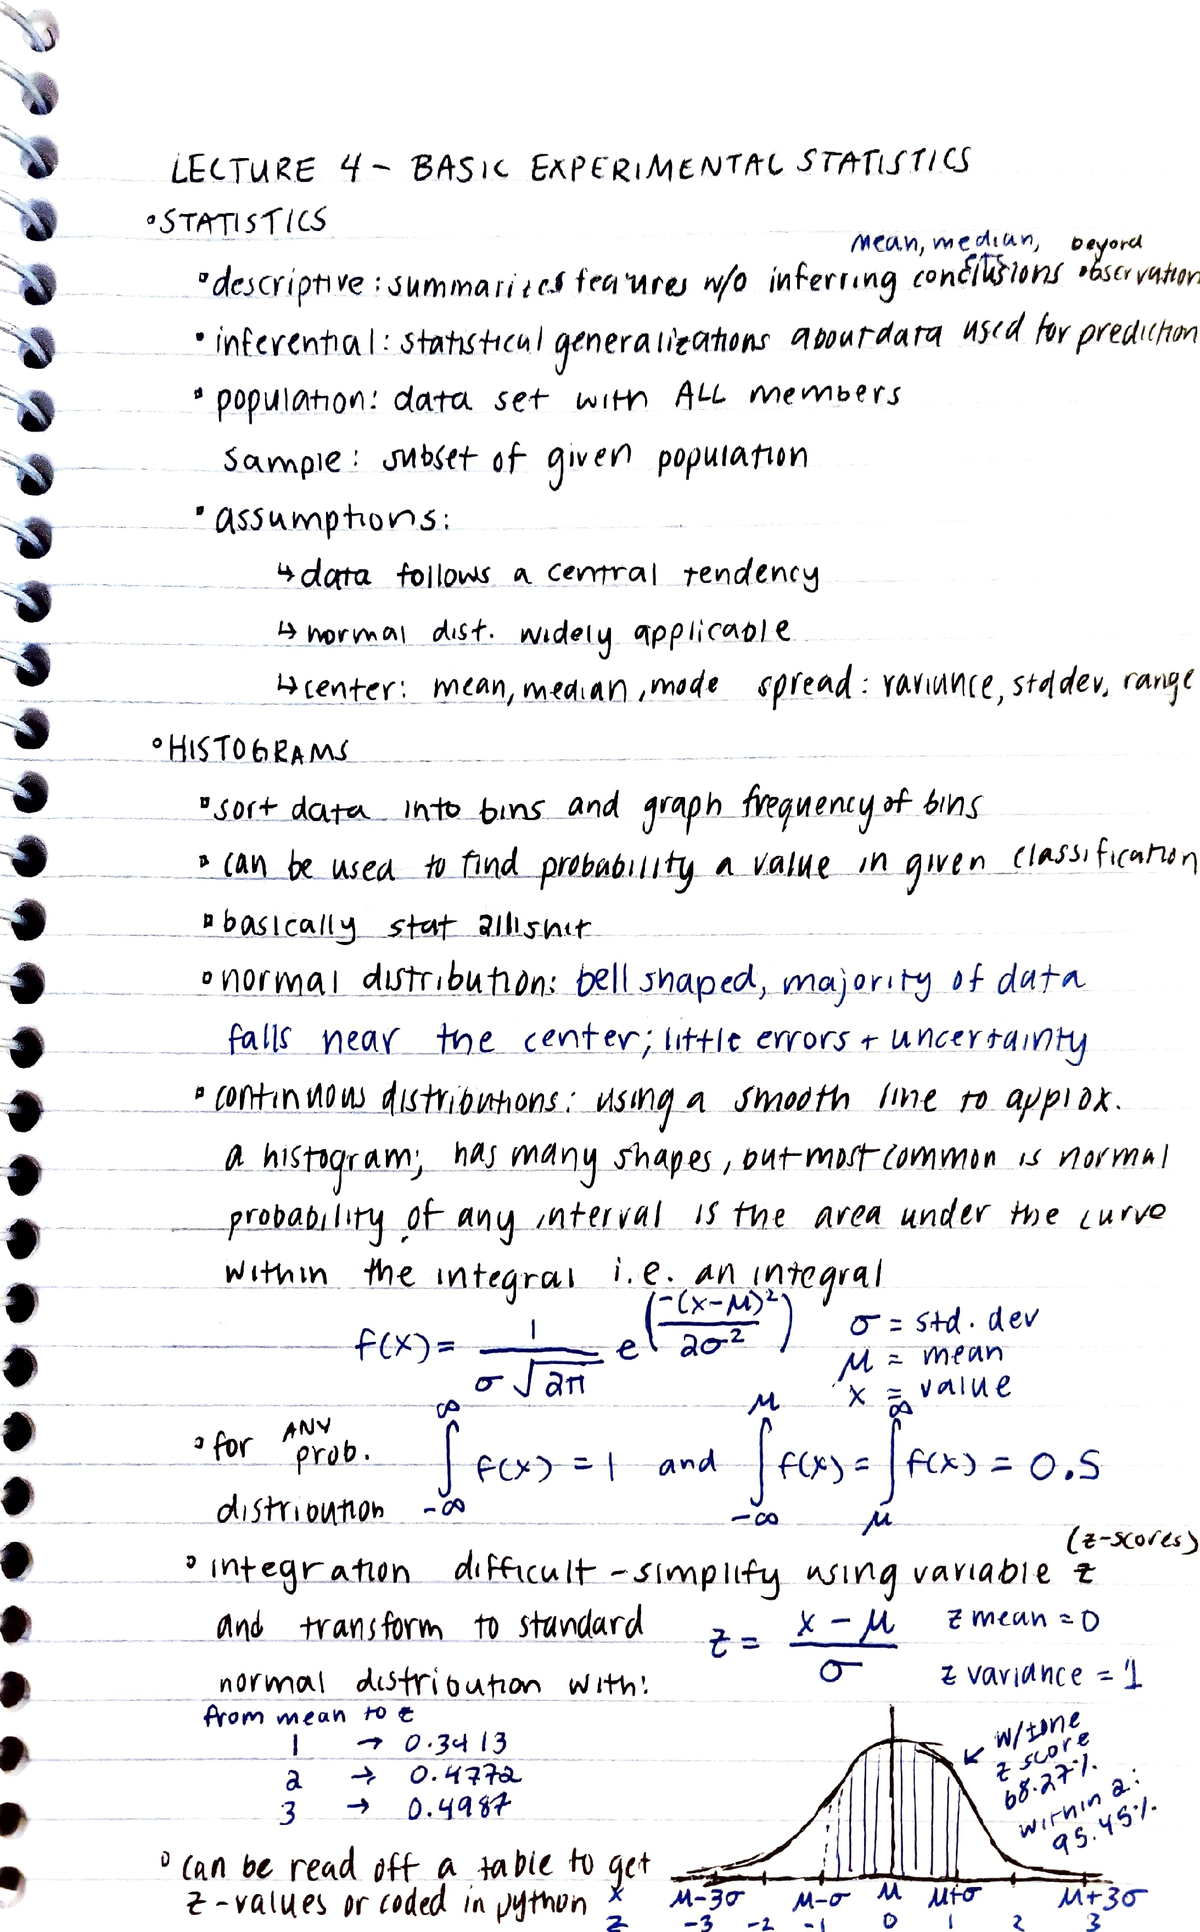 LECTURE 4 - BASIC EXPERIMENTAL STATISTICS
• STATISTICS
mean, median, beyond
• descriptive: summarizes features w/o inferring conclusions observation
• inferential: statistical generalizations about data used for prediction
• population: data set with ALL members
sample: subset of given population
• assumptions:
↳ data follows a central tendency
↳ normal dist. widely applicable
↳ center: mean, median, mode spread: variance, std dev, range
• HISTOGRAMS
• sort data into bins and graph frequency of bins
• can be used to find probability a value in given classification
• basically stat
• normal distribution: bell shaped, majority of data
falls near the center; little errors + uncertainty
• continuous distributions: using a smooth line to approx.
a histogram; has many shapes, but most common is normal
probability of any interval is the area under the curve
within the integral i.e. an integral
f(x) = 1/(σ√2π) e^(-(x-μ)²/2σ²) σ = std. dev
μ = mean
x = value
• for ANY prob. ∫_{-∞}^{∞} f(x) = 1 and ∫_{-∞}^{μ} f(x) = ∫_{μ}^{∞} f(x) = 0.5
distribution
(z-scores)
• integration difficult - simplify using variable z
and transform to standard z = (x - μ)/σ z mean = 0
normal distribution with: z variance = 1
from mean to z
1 → 0.3413
2 → 0.4772
3 → 0.4987
w/ ± one
z score
68.27%
within 2:
95.45%
• can be read off a table to get
z-values or coded in python
x μ-3σ μ-σ μ μ+σ μ+3σ
z -3 -2 -1 0 1 2 3